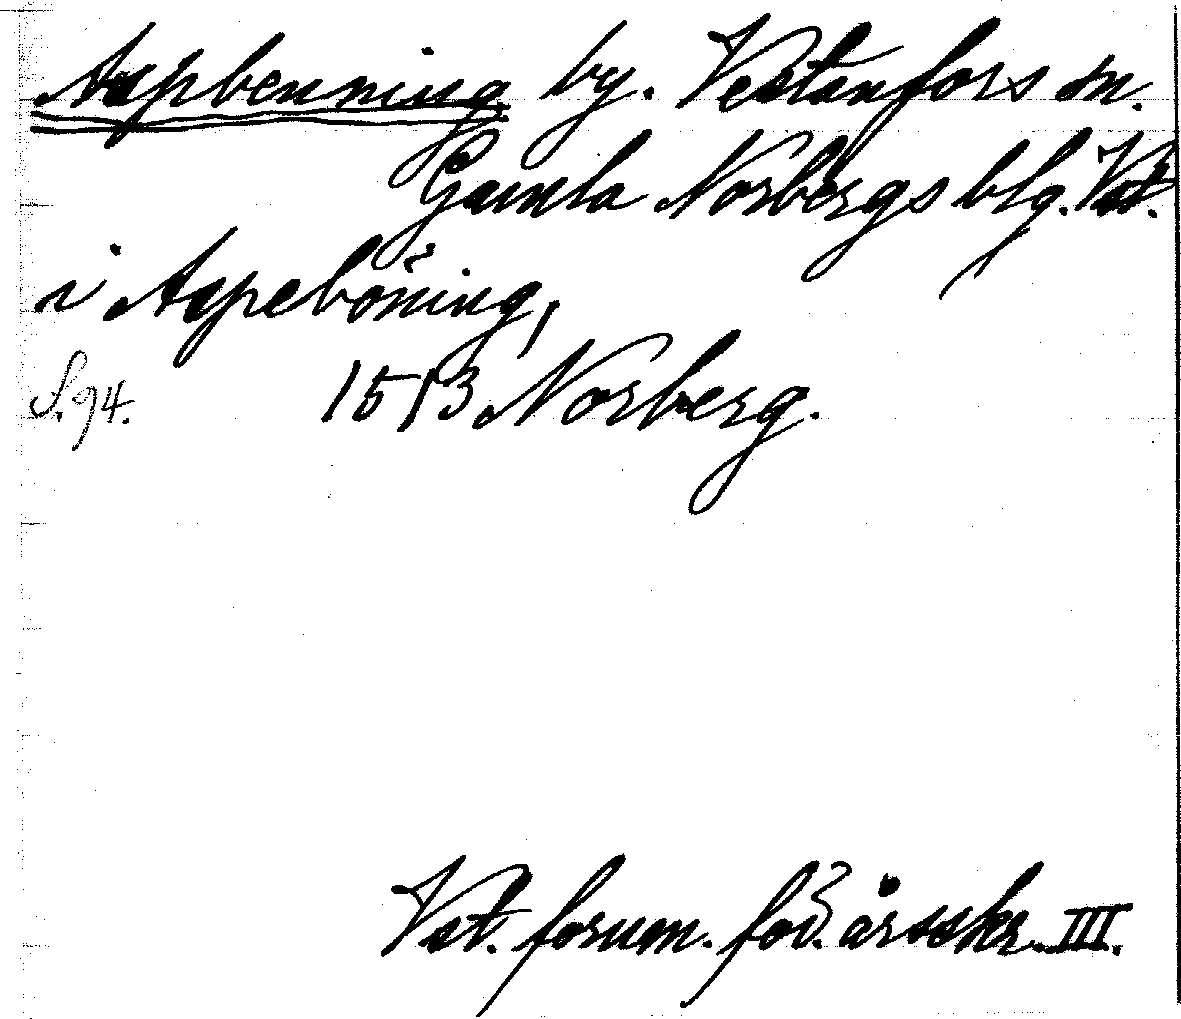 Aspbenning by. Vestanfors sn.
Gamla Norbergs blg. Vst.
i Aspeböning,
S. 94. 1513 Norberg.
Vst. fornm. för. årsskr. III.